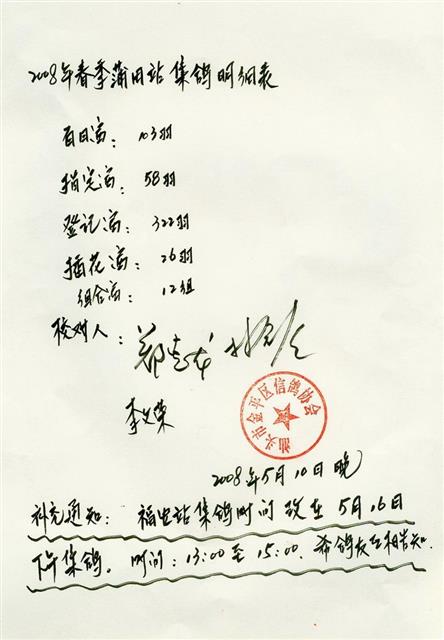 2008年春季蒲田站集鸽明细表
百日赏: 103羽
指定赏: 58羽
登记赏: 322羽
插花赏: 26羽
组合赏: 12组
校对人:
汕头市金平区信鸽协会
2008年5月10日晚
补充通知: 福田站集鸽时间改在5月16日
下午集鸽。时间:13:00至15:00. 希鸽友互相告知.